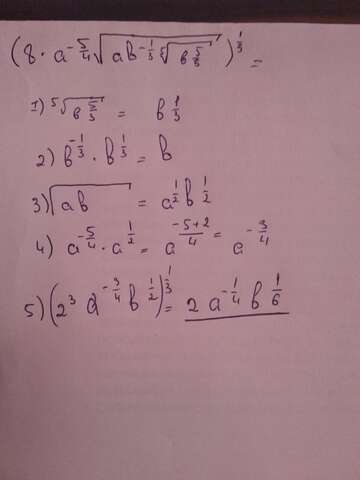 (8 · a^{-5/4} √(ab^{-1/3} ⁵√(b^{5/3})))^{1/3} =
1) ⁵√(b^{5/3}) = b^{1/3}
2) b^{-1/3} · b^{1/3} = b
3) √(ab) = a^{1/2} b^{1/2}
4) a^{-5/4} · a^{1/2} = a^{(-5+2)/4} = a^{-3/4}
5) (2³ a^{-3/4} b^{1/2})^{1/3} = 2 a^{-1/4} b^{1/6}